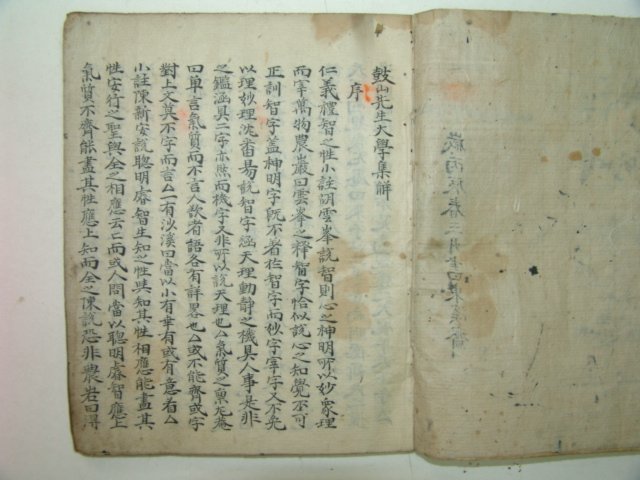 鼓山先生大學集解
序
仁義禮智之性小註胡雲峯說智則心之神明所以妙衆理
而宰萬物農巖曰雲峯之釋智字恰似說心之知覺不可
正訓智字盖神明字旣不者於智字而妙字宰字又不免
以理妙理沈番易說智字涵天理動靜之機具人事是非
之鑑涵具二字亦然而機字又非所以說天理也厶氣質之稟尤菴
曰單言氣質而不言人欲者語各有詳畧也厶或不能齊或字
對上文莫不字而言厶一有沙溪曰當以小有幸有或有意看厶
小註陳新安說聰明睿智生知之性與知其性相應能盡其
性安行之聖與全之相應云云而或人問當以聰明睿智應上
氣質不齊能盡其性應上知而全之陳說恐非農岩曰得
歲丙 春三月